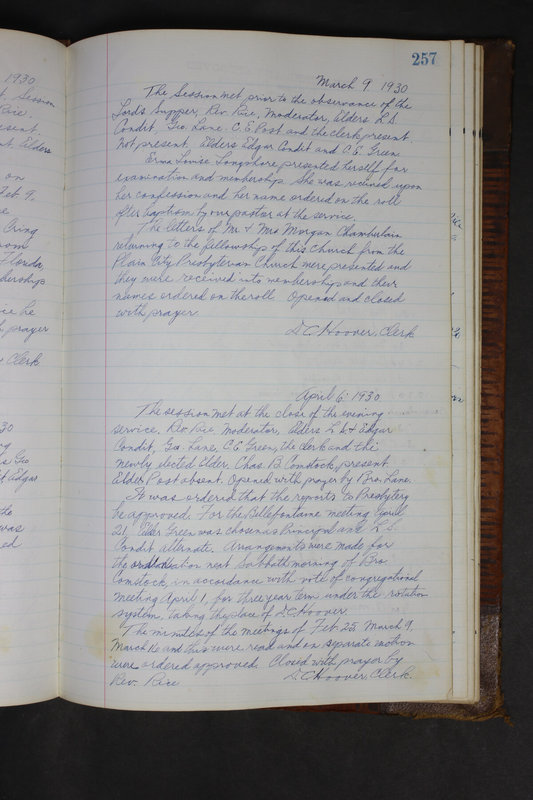 257
March 9 1930
The Session met prior to the observance of the
Lord's Supper, Rev. Rice, Moderator, Elders L. S.
Condit, Geo. Lane. C. E. Post and the clerk present.
Not present, Elders Edgar Condit and C. E. Green
Erma Louise Longshore presented herself for
examination and membership. She was received upon
her confession and her name ordered on the roll
after baptism by our pastor at the service.
The letters of Mr & Mrs Morgan Chamberlain
returning to the fellowship of this Church from the
Plain City Presbyterian Church were presented and
they were received into membership and their
names ordered on the roll. Opened and closed
with prayer
D. C. Hoover, Clerk
April 6 1930
The session met at the close of the evening
service. Rev. Rice, Moderator, Elders L. S. & Edgar
Condit, Geo. Lane, C. E. Green, the Clerk and the
newly elected Elder Chas. B. Comstock, present.
Elder Post absent. Opened with prayer by Bro. Lane.
It was ordered that the reports to Presbytery
be approved. For the Bellefontaine meeting April
21, Elder Green was chosen as Principal and L. S.
Condit alternate. Arrangements were made for
the ordination next Sabbath morning of Bro
Comstock, in accordance with vote of congregational
meeting April 1, for three year term under the rotation
system, taking the place of D. C. Hoover.
The minutes of the meetings of Feb 25, March 9,
March 16 and this were read and on separate motion
were ordered approved. Closed with prayer by
Rev. Rice
D. C. Hoover, Clerk.
1930
Session
Rice,
Elders
on
Feb 9,
Florida,
he
prayer
Clerk
30
Geo
Edgar
the
was
ed